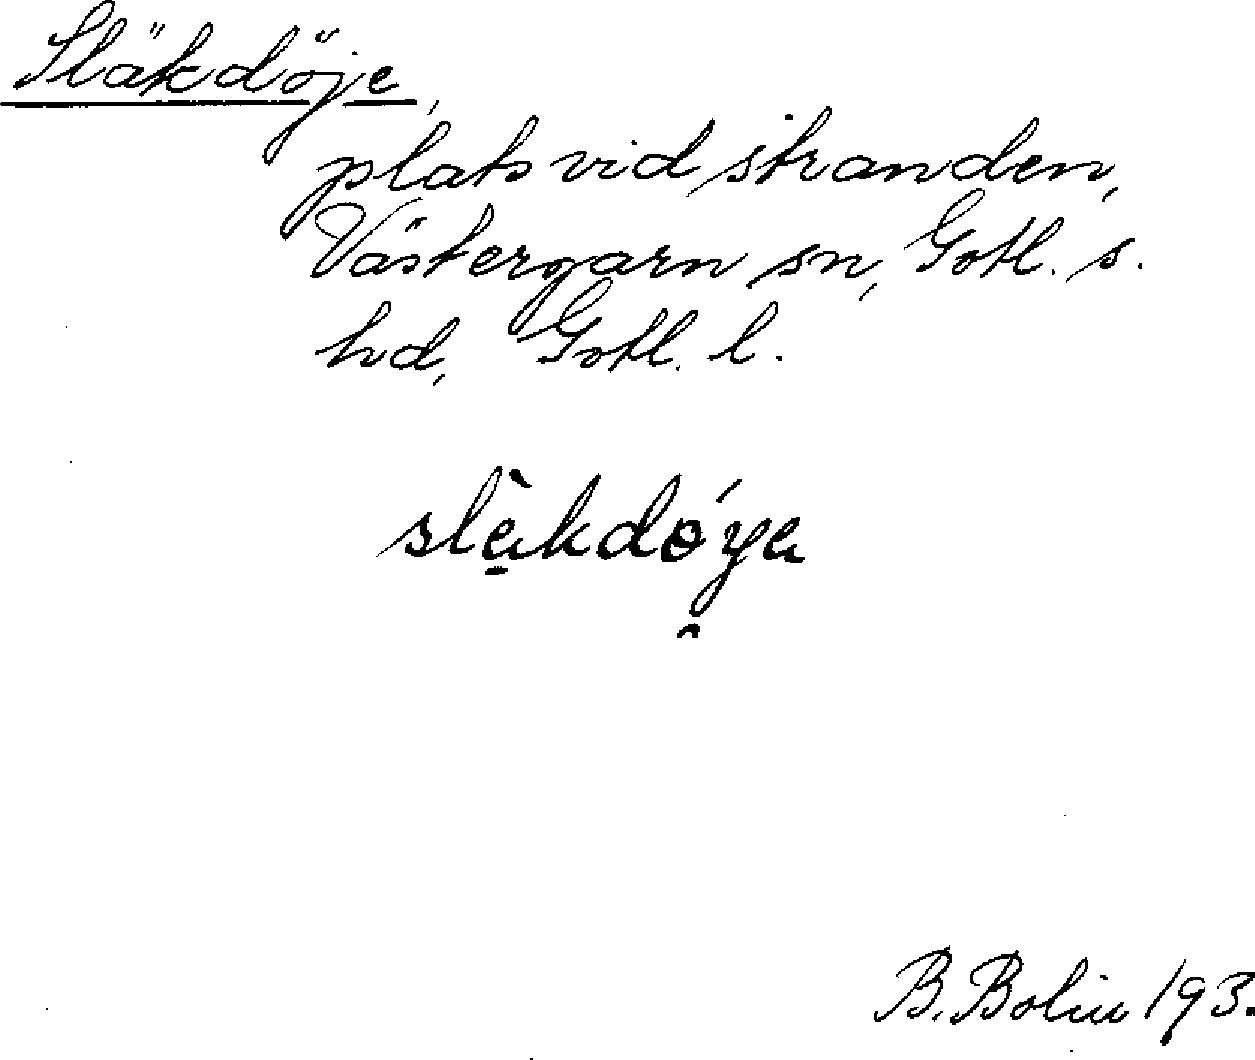 Släkdöje,
plats vid stranden,
Västergarn sn, Gotl. s.
hd, Gotl. l.
slèkdóya
B. Bolin 193.